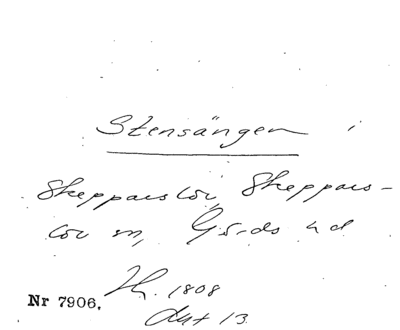 Stensängen i
Skepparslöv, Skeppars-
löv sn, Gärds hd
Nr 7906. 1808
Akt 13